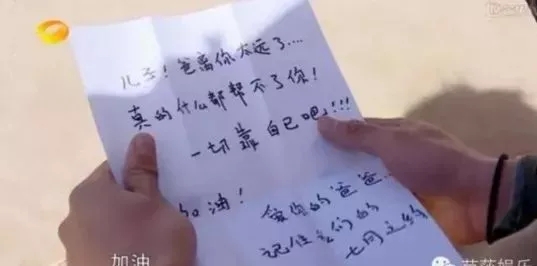 儿子！爸离你太远了....
真的什么都帮不了你！
一切靠自己吧!!!
加油！
爱你的爸爸...
记住我们的
七同之约
加油